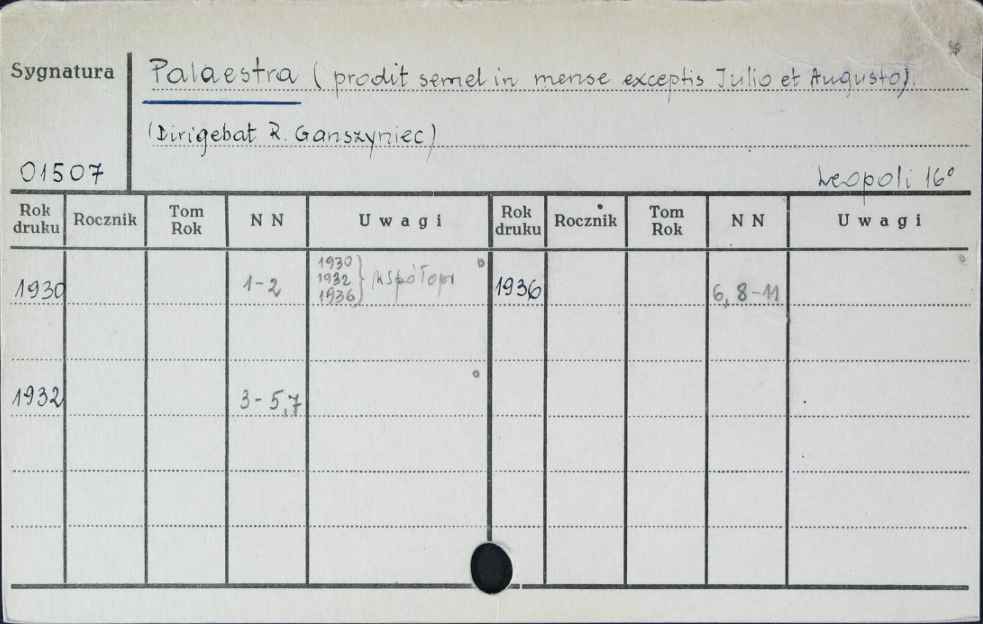 Sygnatura
Palaestra (prodit semel in mense exceptis Julio et Augusto).
(Dirigebat R. Ganszyniec)
01507
Leopoli 16°
Rok druku Rocznik Tom Rok NN Uwagi Rok druku Rocznik Tom Rok NN Uwagi
1930 1-2 1930 1932 1936 } współopr 1936 6, 8-11
1932 3-5,7